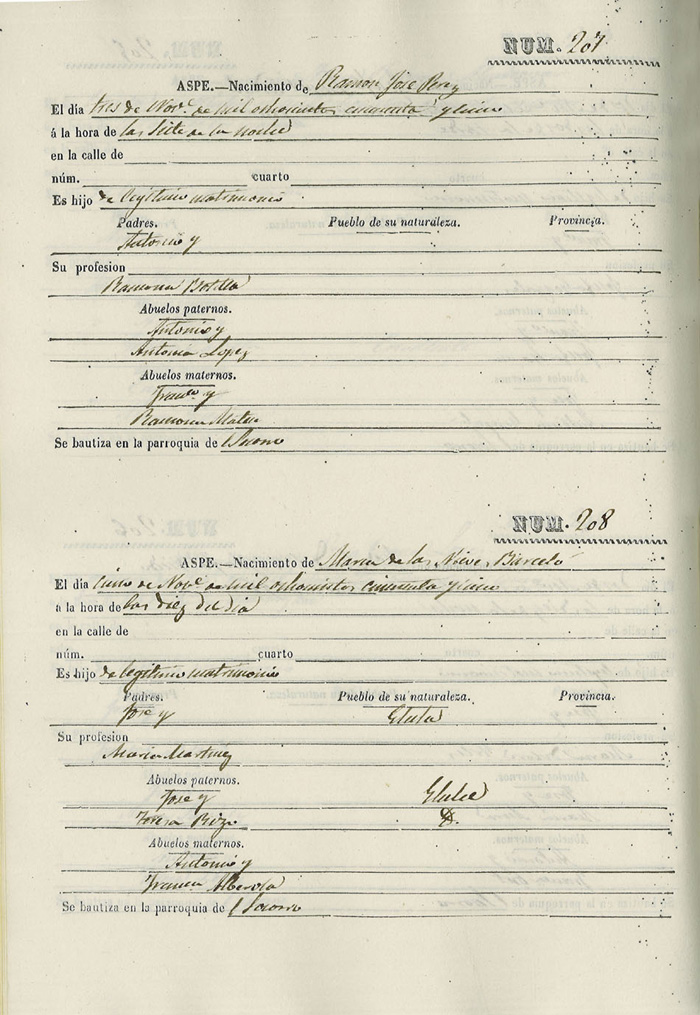 NUM. 207
ASPE.—Nacimiento de Ramon Jose Perez
El día tres de Nov.e de mil ochocientos cincuenta y cinco
á la hora de las siete de la noche
en la calle de
núm. cuarto
Es hijo de legitimo matrimonio
Padres. Pueblo de su naturaleza. Provincia.
Antonio y
Su profesion
Ramona Botella
Abuelos paternos.
Antonio y
Antonia Lopez
Abuelos maternos.
Fran.co y
Ramona Mateu
Se bautiza en la parroquia de
NUM. 208
ASPE.—Nacimiento de Maria de las Nieves Barceló
El día cinco de Nov.e de mil ochocientos cincuenta y cinco
a la hora de las diez del dia
en la calle de
núm. cuarto
Es hijo de legitimo matrimonio
Padres. Pueblo de su naturaleza. Provincia.
Jose y Elche
Su profesion
Maria Martinez
Abuelos paternos.
Jose y Elche
Teresa Rizo
Abuelos maternos.
Antonio y
Fran.ca Alberola
Se bautiza en la parroquia de l Socorro